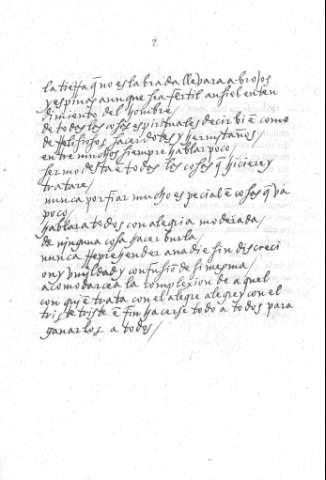 2
la tierra q̄ no es labrada lleuara abrojos
y espinas aunque sea fertil ansi el enten
dimiento del hombre
de todas las cosas espirituales decir biē como
de Religiosos sacerdotes y hermitaños
entre muchos siempre hablar poco
ser modesta ē todas las cosas q̄ hiciere y
tratare
nunca porfiar mucho especial ē cosas q̄ va
poco
hablar a todos con alegria moderada
de ninguna cosa hacer burla
nunca Reprehender a nadie sin discreci
on y vmyldad y confusiō de si mesma
acomodarce a la complexion de aquel
con quē trata con el alegre alegre y con el
triste triste ē fin hacerse todo a todos para
ganarlos a todos